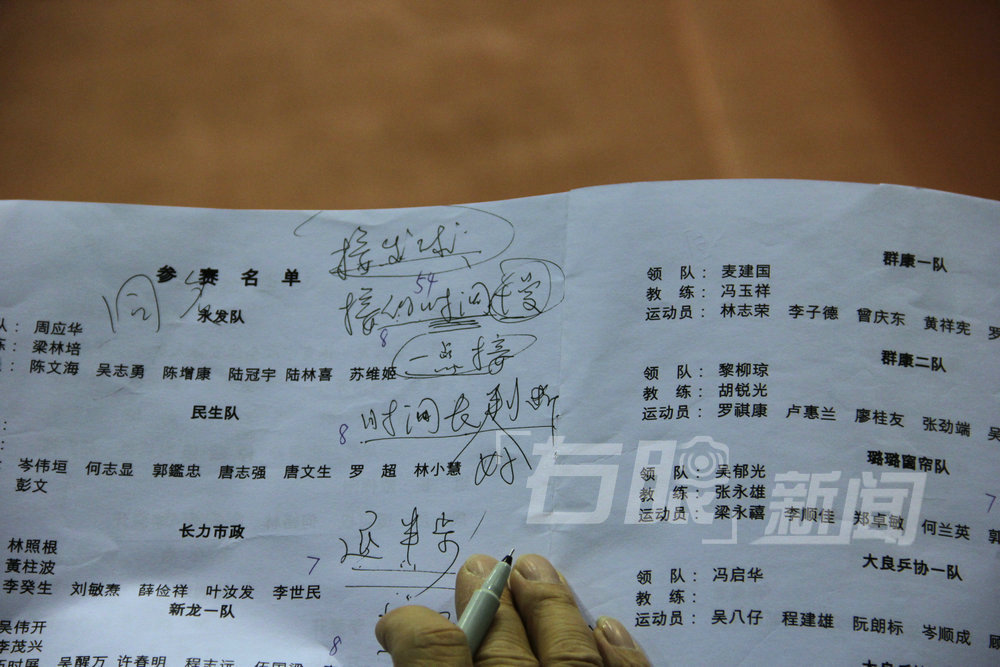 参赛名单
永发队
队：周应华
练：梁林培
：陈文海 吴志勇 陈增康 陆冠宇 陆林喜 苏维姬
8
民生队
8
岑伟垣 何志显 郭鑑忠 唐志强 唐文生 罗超 林小慧
彭文
长力市政
林照根
黄柱波
7
李癸生 刘敏焘 薛俭祥 叶汝发 李世民
新龙一队
吴伟开
李茂兴
8
吴醒万 许春明 程志远
接发球
54
时间
一点接
时间长判断
好
退半步
群康一队
领队：麦建国
教练：冯玉祥
运动员：林志荣 李子德 曾庆东 黄祥宪 罗
群康二队
领队：黎柳琼
教练：胡锐光
运动员：罗祺康 卢惠兰 廖桂友 张劲端 吴
璐璐窗帘队
领队：吴郁光
教练：张永雄
7
运动员：梁永禧 李顺佳 郑卓敏 何兰英 郭
大良乒协一队
领队：冯启华
教练：
运动员：吴八仔 程建雄 阮朗标 岑顺成
右眼新闻